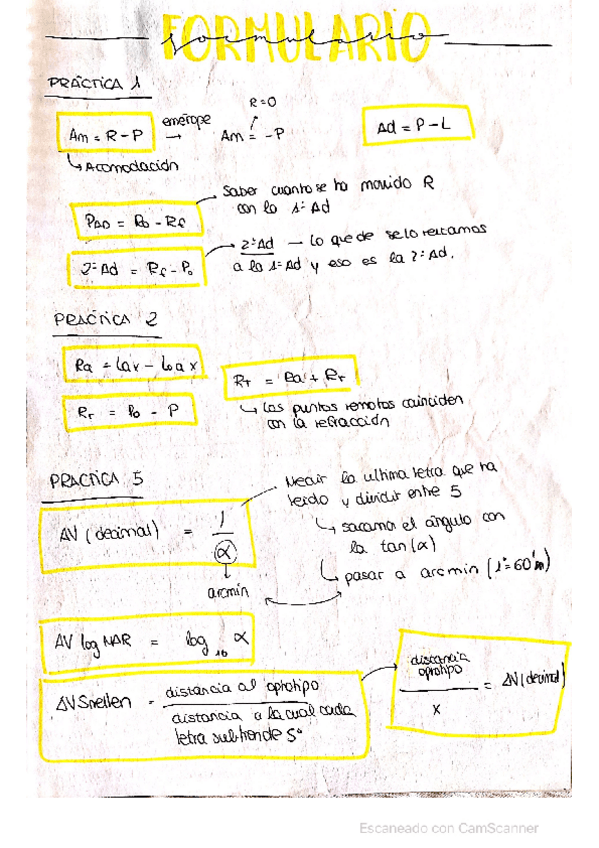 FORMULARIO
formulario
PRÁCTICA 1
Am = R - P
emetrope
→
R = 0
Am = -P
Ad = P - L
↳ Acomodación
Saber cuanto se ha movido R
con la 1ª Ad
PAO = Po - Rf
2ª Ad — Lo que de se lo restamos
a la 1ª Ad y eso es la 2ª Ad.
2ª Ad = Rf - Po
PRÁCTICA 2
Ra = Lax - Loax
Rr = Po - P
RT = Ra + Rr
↳ Los puntos remotos coinciden
con la refracción
PRACTICA 5
AV (decimal) = 1 / α
arcmin
Medir la ultima letra que ha
leido y dividir entre 5
↳ sacamos el ángulo con
la tan(α)
↳ pasar a arcmin (1° = 60')
AV logMAR = log10 α
AV Snellen = distancia al optotipo
distancia a la cual cada
letra subtiende 5°
distancia
optotipo
x
= AV (decimal)
Escaneado con CamScanner